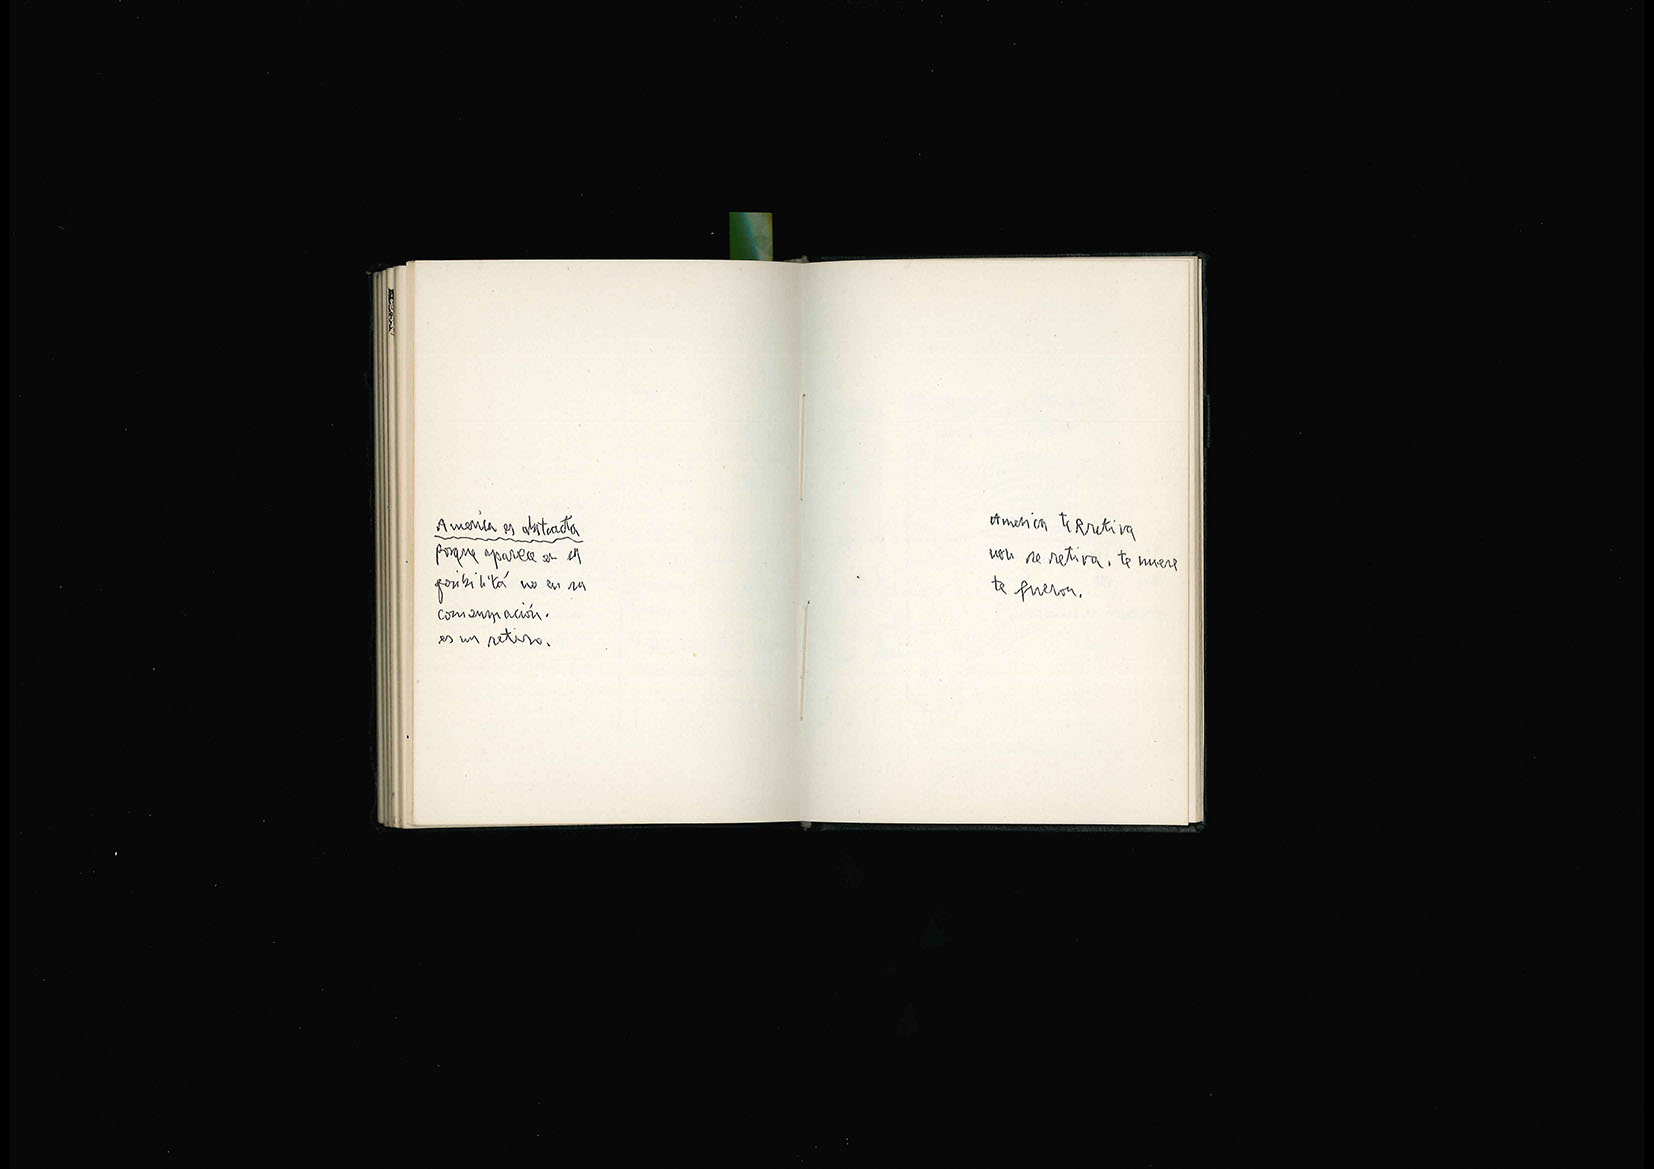 America es abstracta
porque aparece en el
posibilitá no en su
consumación.
es un retiro.
America te Rretira
non se retira, te muere
te fueron.